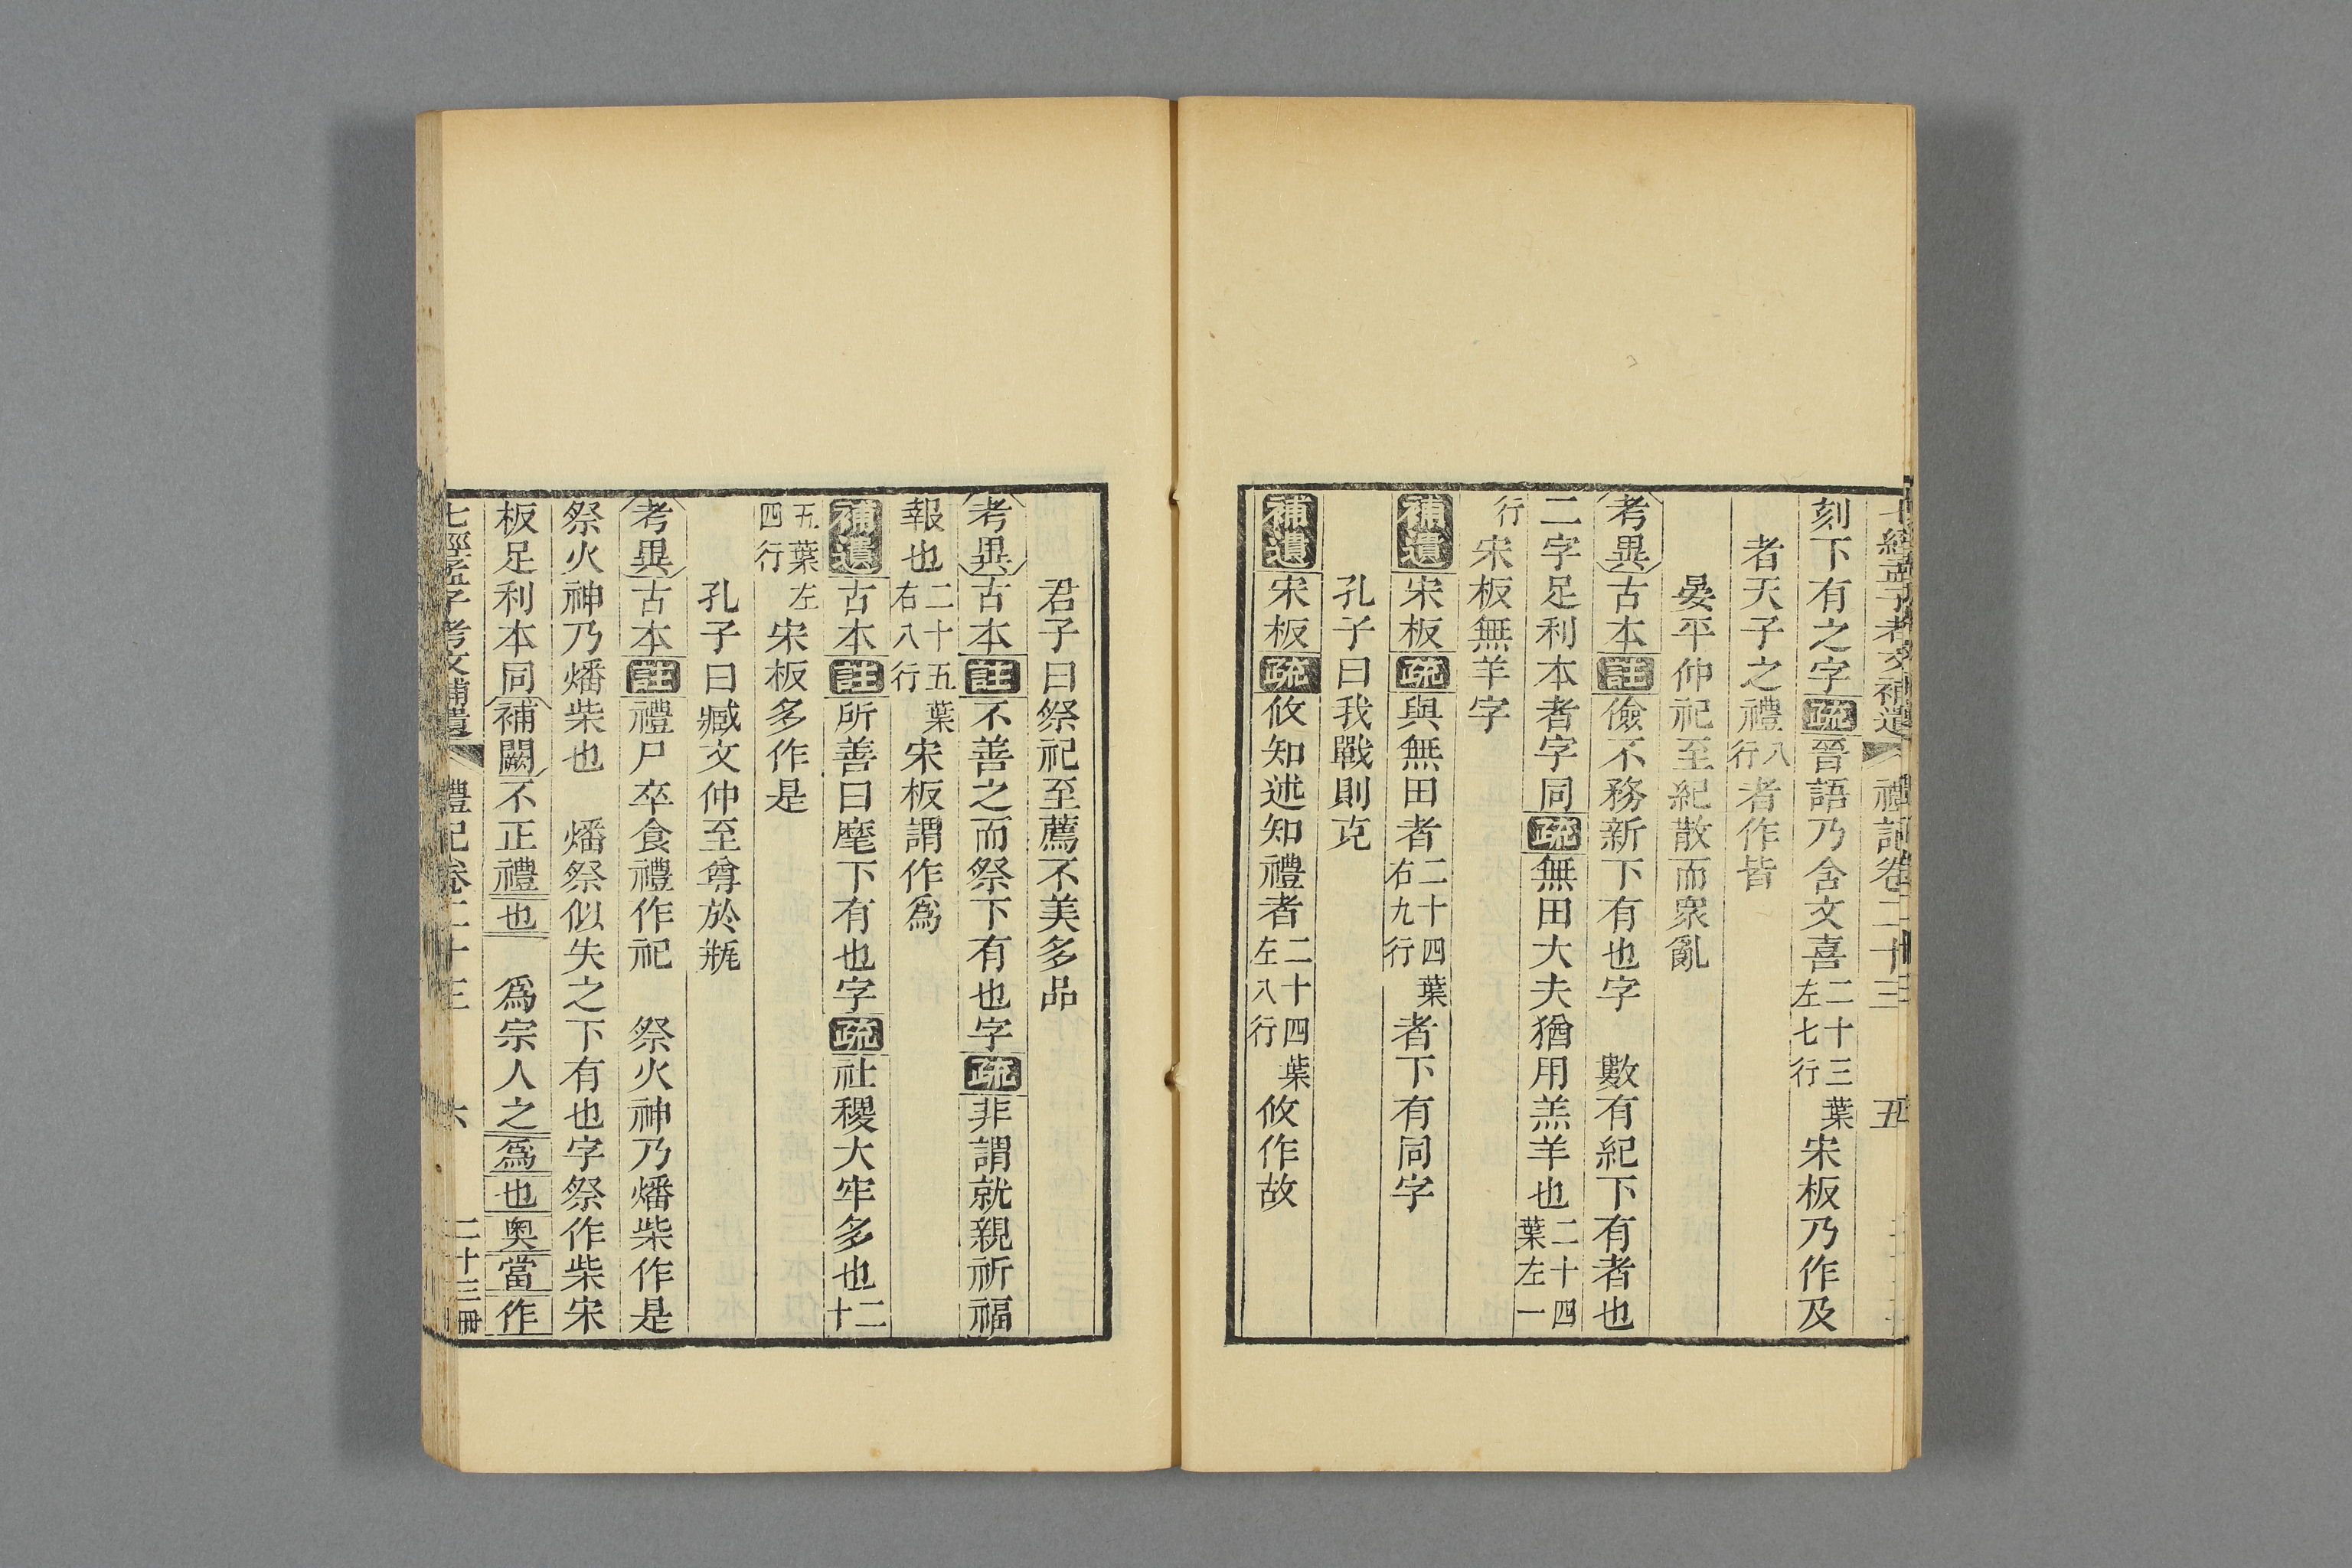 七經孟子考文補遺 禮記卷二十三 五
刻下有之字疏晉語乃含文喜二十三葉左七行宋板乃作及
者天子之禮八行者作皆
晏平仲祀至紀散而衆亂
考異古本註儉不務新下有也字 數有紀下有者也
二字足利本者字同疏無田大夫猶用羔羊也二十四葉左一
行宋板無羊字
補遺宋板疏與無田者二十四葉右九行者下有同字
孔子曰我戰則克
補遺宋板疏攸知述知禮者二十四葉左八行攸作故
君子曰祭祀至薦不美多品
考異古本註不善之而祭下有也字疏非謂就親祈福
報也二十五葉右八行宋板謂作爲
補遺古本註所善曰麾下有也字疏社稷大牢多也二十
五葉左四行宋板多作是
孔子曰臧文仲至尊於瓶
考異古本註禮尸卒食禮作祀 祭火神乃燔柴作是
祭火神乃燔柴也 燔祭似失之下有也字祭作柴宋
板足利本同補闕不正禮也 爲宗人之爲也奥當作
七經孟子考文補遺 禮記卷二十三 六 二十三冊